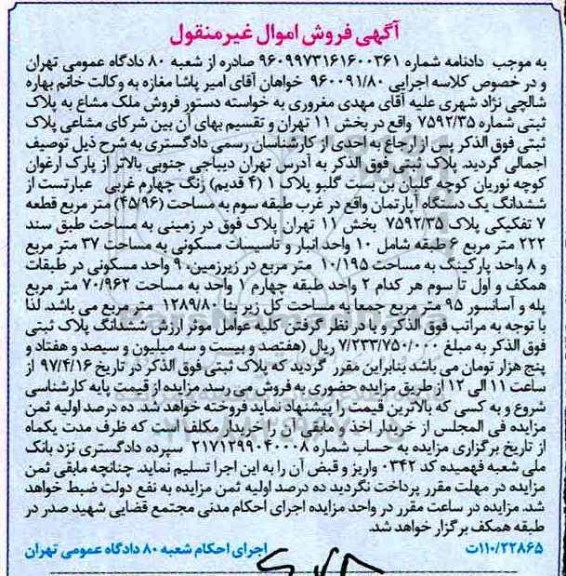 آگهی فروش اموال غیرمنقول
به موجب دادنامه شماره ۹۶۰۹۹۷۳۱۶۱۶۰۰۳۶۱ صادره از شعبه ۸۰ دادگاه عمومی تهران
و در خصوص کلاسه اجرایی ۹۶۰۰۹۱/۸۰ خواهان آقای امیر پاشا مغازه به وکالت خانم بهاره
شالچی نژاد شهری علیه آقای مهدی مغروری به خواسته دستور فروش ملک مشاع به پلاک
ثبتی شماره ۷۵۹۲/۳۵ واقع در بخش ۱۱ تهران و تقسیم بهای آن بین شرکای مشاعی پلاک
ثبتی فوق الذکر پس از ارجاع به احدی از کارشناسان رسمی دادگستری به شرح ذیل توصیف
اجمالی گردید. پلاک ثبتی فوق الذکر به آدرس تهران دیباجی جنوبی بالاتر از پارک ارغوان
کوچه نوریان کوچه گلیان بن بست گلبو پلاک ۱ (۴ قدیم) زنگ چهارم غربی عبارتست از
ششدانگ یک دستگاه آپارتمان واقع در غرب طبقه سوم به مساحت (۴۵/۹۶) متر مربع قطعه
۷ تفکیکی پلاک ۷۵۹۲/۳۵ بخش ۱۱ تهران پلاک فوق در زمینی به مساحت طبق سند
۲۲۲ متر مربع ۶ طبقه شامل ۱۰ واحد انبار و تاسیسات مسکونی به مساحت ۳۷ متر مربع
و ۸ واحد پارکینگ به مساحت ۱۰/۱۹۵ متر مربع در زیرزمین، ۹ واحد مسکونی در طبقات
همکف و اول تا سوم هر کدام ۲ واحد طبقه چهارم ۱ واحد به مساحت ۷۰/۹۶۲ متر مربع
پله و آسانسور ۹۵ متر مربع جمعا به مساحت کل زیر بنا ۱۲۸۹/۸۰ متر مربع می باشد. لذا
با توجه به مراتب فوق الذکر و با در نظر گرفتن کلیه عوامل موثر ارزش ششدانگ پلاک ثبتی
فوق الذکر به مبلغ ۷/۲۳۳/۷۵۰/۰۰۰ ریال (هفتصد و بیست و سه میلیون و سیصد و هفتاد و
پنج هزار تومان می باشد بنابراین مقرر گردید که پلاک ثبتی فوق الذکر در تاریخ ۹۷/۴/۱۶ از
ساعت ۱۱ الی ۱۲ از طریق مزایده حضوری به فروش می رسد. مزایده از قیمت پایه کارشناسی
شروع و به کسی که بالاترین قیمت را پیشنهاد نماید فروخته خواهد شد. ده درصد اولیه ثمن
مزایده فی المجلس از خریدار اخذ و مابقی آن را خریدار مکلف است که ظرف مدت یکماه
از تاریخ برگزاری مزایده به حساب شماره ۲۱۷۱۲۹۹۰۴۰۰۰۸ سپرده دادگستری نزد بانک
ملی شعبه فهمیده کد ۰۳۴۲ واریز و قبض آن را به این اجرا تسلیم نماید. چنانچه مابقی ثمن
مزایده در مهلت مقرر پرداخت نگردید ده درصد اولیه ثمن مزایده به نفع دولت ضبط خواهد
شد. مزایده در ساعت مقرر در واحد مزایده اجرای احکام مدنی مجتمع قضایی شهید صدر در
طبقه همکف برگزار خواهد شد.
۱۱۰/۲۲۸۶۵ت اجرای احکام شعبه ۸۰ دادگاه عمومی تهران